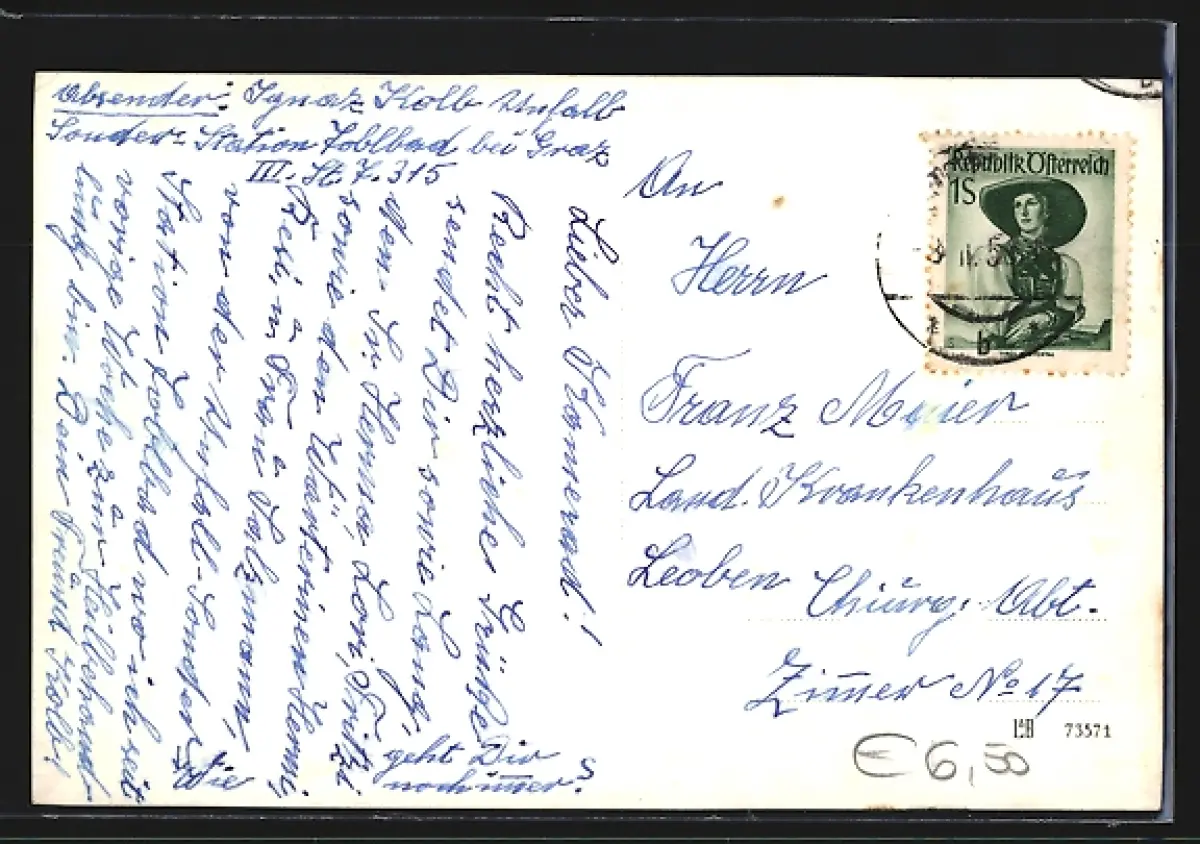 Absender: Ignaz Kolb Unfall
Sonder-Station Tobelbad bei Graz
III. St. Z. 315
Lieber Kamerad!
Recht herzliche Grüße
sendet Dir sowie
dem Sr. Herma Lori, Fritzi
sowie den Wärterinen Hermi,
Resi, u Frau Salzmann,
von der Unfall-Sonder
Station Tobelbad wo ich seit
vorige Woche zur Heilbehand
lung bin. Dein Freund Kolb!
Wie geht Dir
noch immer?
An
Herrn
Franz Maier
Land. Krankenhaus
Leoben Chiurg. Abt.
Zimmer No 17
Republik Österreich
1S
IV. 5
b
L&B 73571
€ 6,50